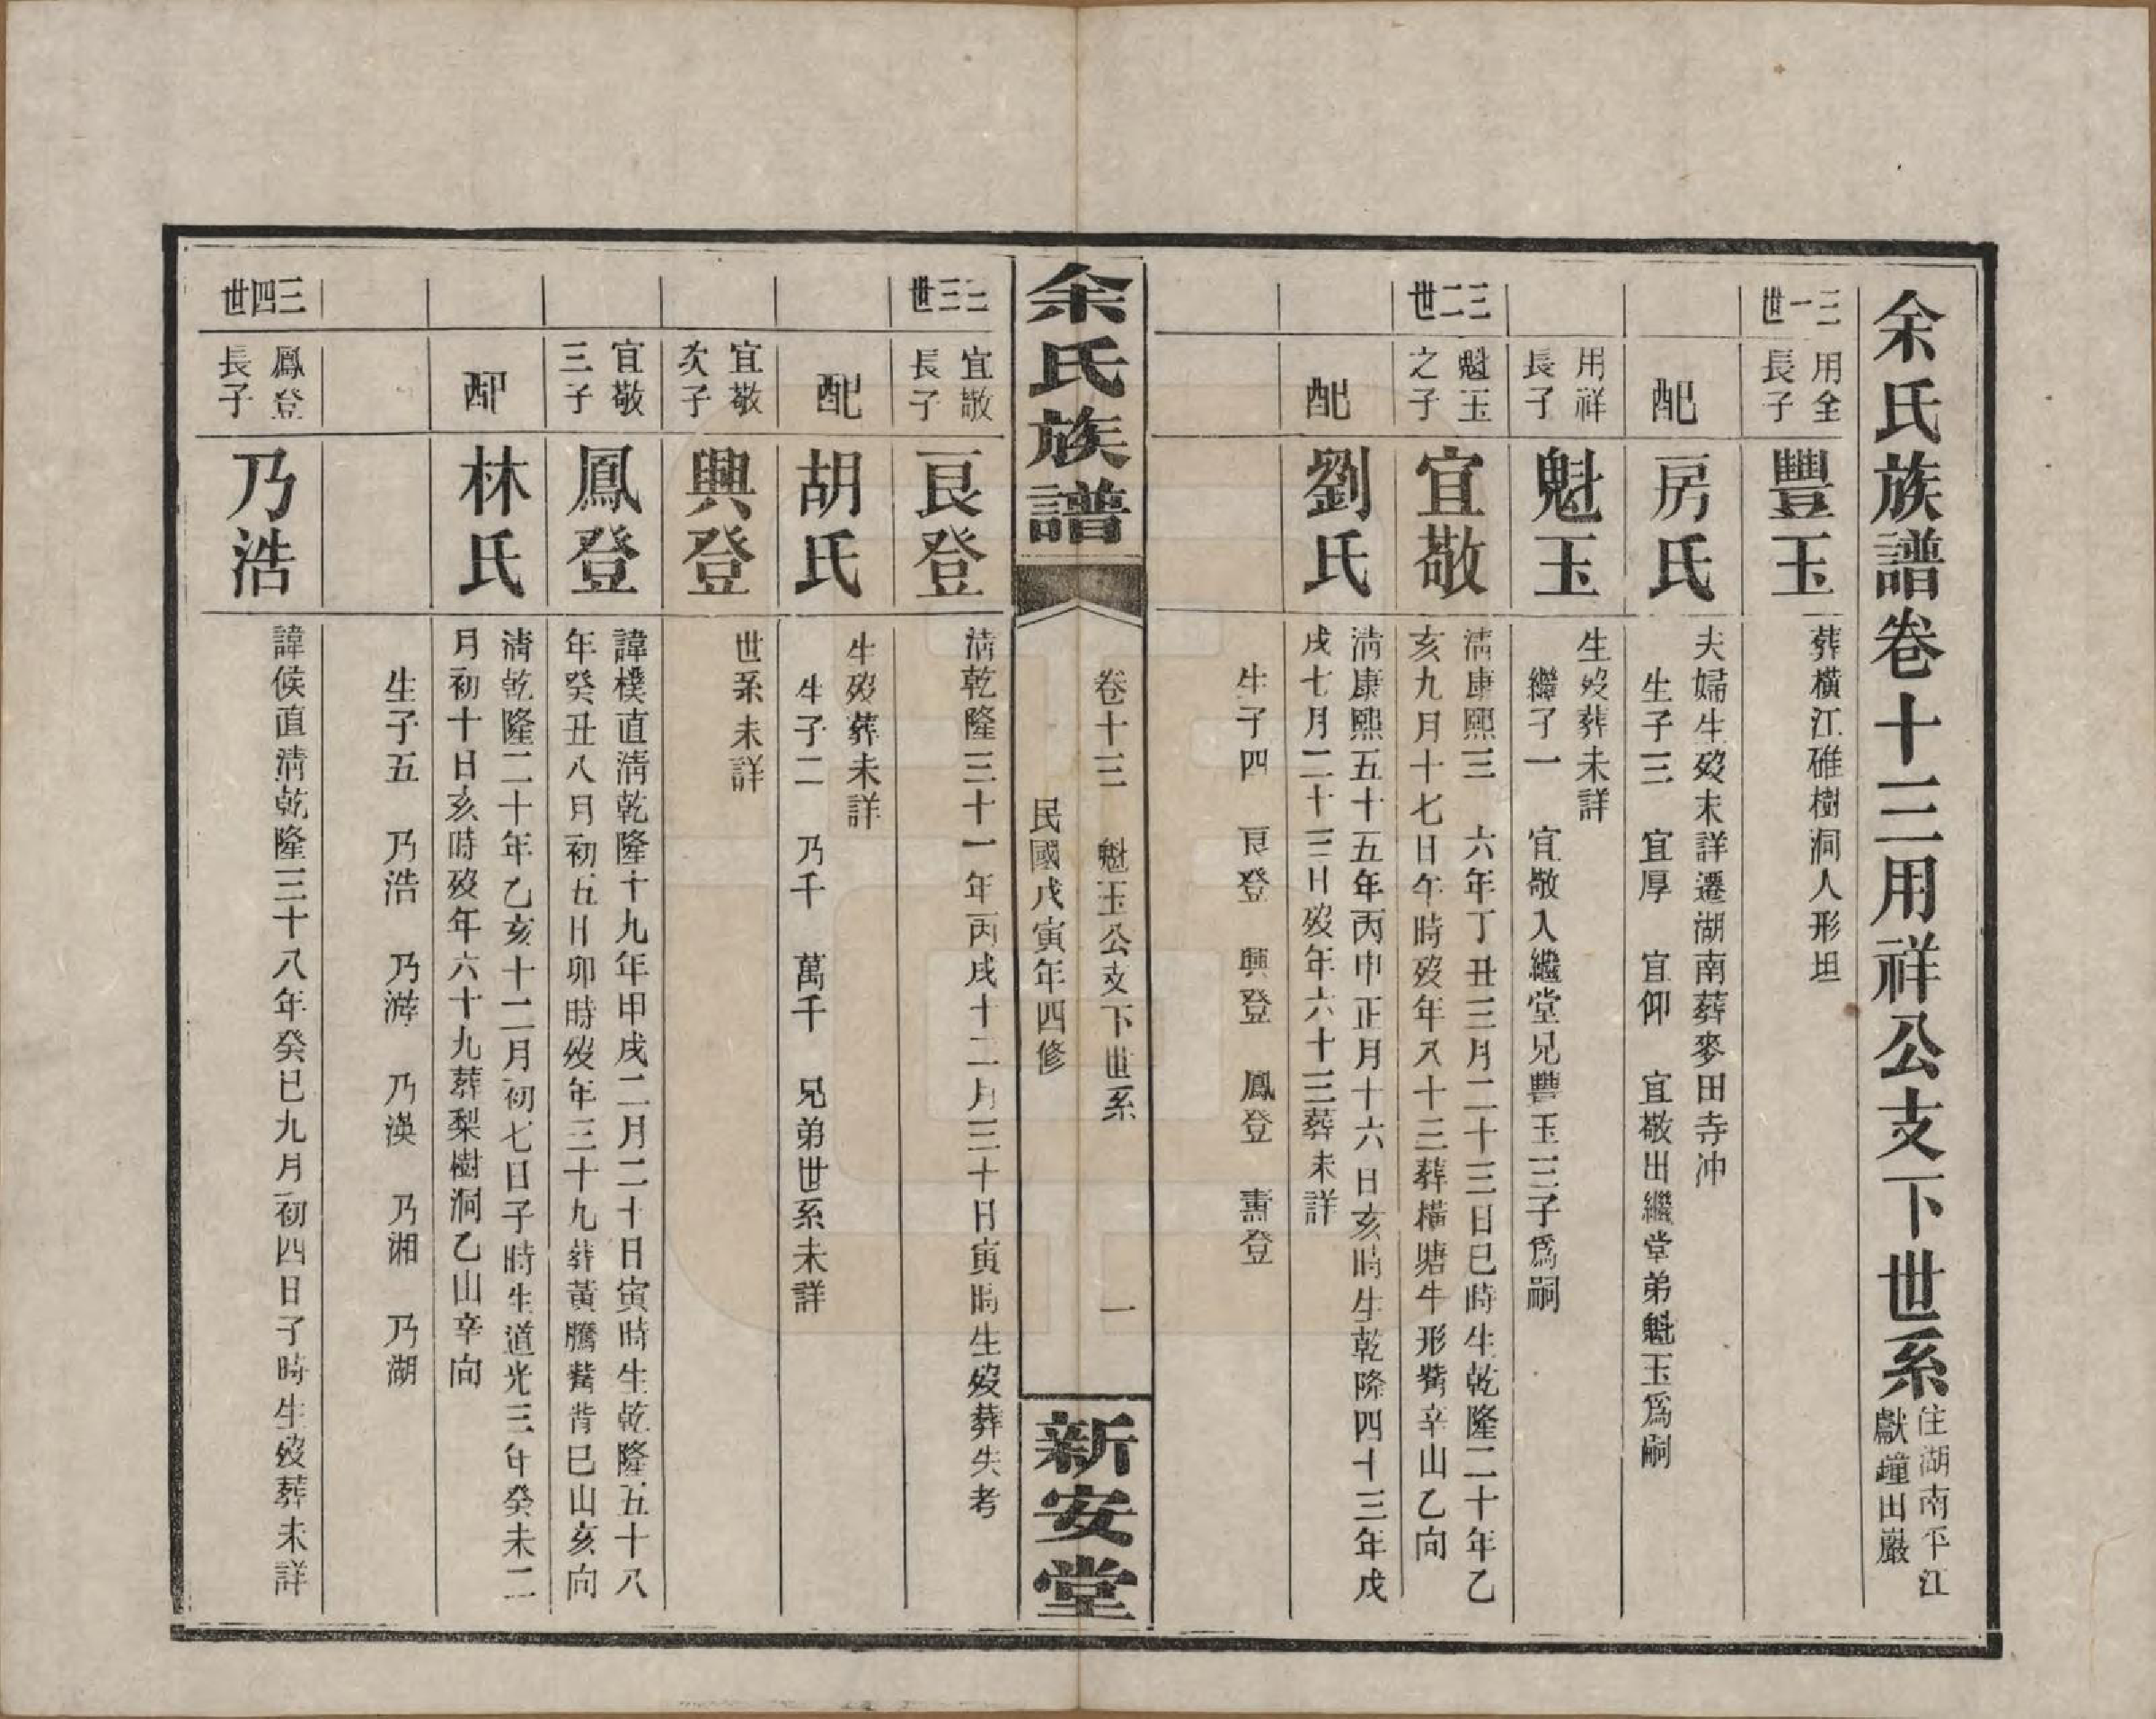 余氏族譜卷十三用祥公支下世系
住湖南平江
獻鐘田巖
三一世
用全
長子
豐玉
葬橫江碓樹洞人形坦
配
房氏
夫婦生歿未詳遷湖南葬麥田寺冲
生子三 宜厚 宜仰 宜敬出繼堂弟魁玉爲嗣
用祥
長子
魁玉
生歿葬未詳
繼子一 宜敬入繼堂兄豐玉三子爲嗣
三二世
魁玉
之子
宜敬
淸康熙三 六年丁丑三月二十三日巳時生乾隆二十年乙
亥九月十七日午時歿年八十三葬橫塘牛形觜辛山乙向
配
劉氏
淸康熙五十五年丙申正月十六日亥時生乾隆四十三年戊
戌七月二十三日歿年六十三葬未詳
生子四 良登 興登 鳳登 壽登
余氏族譜
卷十三 魁玉公支下世系 一
民國戊寅年四修
新安堂
三三世
宜敬
長子
良登
淸乾隆三十一年丙戌十二月三十日寅時生歿葬失考
配
胡氏
生歿葬未詳
生子二 乃千 萬千 兄弟世系未詳
宜敬
次子
興登
世系未詳
宜敬
三子
鳳登
諱樸直淸乾隆十九年甲戌二月二十日寅時生乾隆五十八
年癸丑八月初五日卯時歿年三十九葬黃騰觜背巳山亥向
配
林氏
淸乾隆二十年乙亥十二月初七日子時生道光三年癸未二
月初十日亥時歿年六十九葬梨樹洞乙山辛向
生子五 乃浩 乃滓 乃漢 乃湘 乃湖
三四世
鳳登
長子
乃浩
諱候直淸乾隆三十八年癸巳九月初四日子時生歿葬未詳